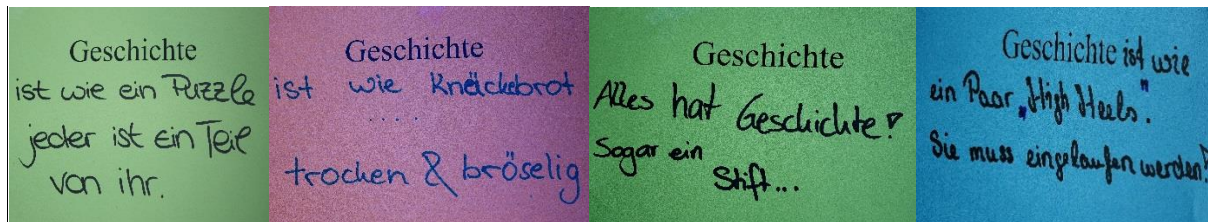 Geschichte
ist wie ein Puzzle
jeder ist ein Teil
von ihr.
Geschichte
ist wie Knäckebrot
....
trocken & bröselig
Geschichte
Alles hat Geschichte!
Sogar ein
Stift...
Geschichte ist wie
ein Paar „High Heels".
Sie muss eingelaufen werden!